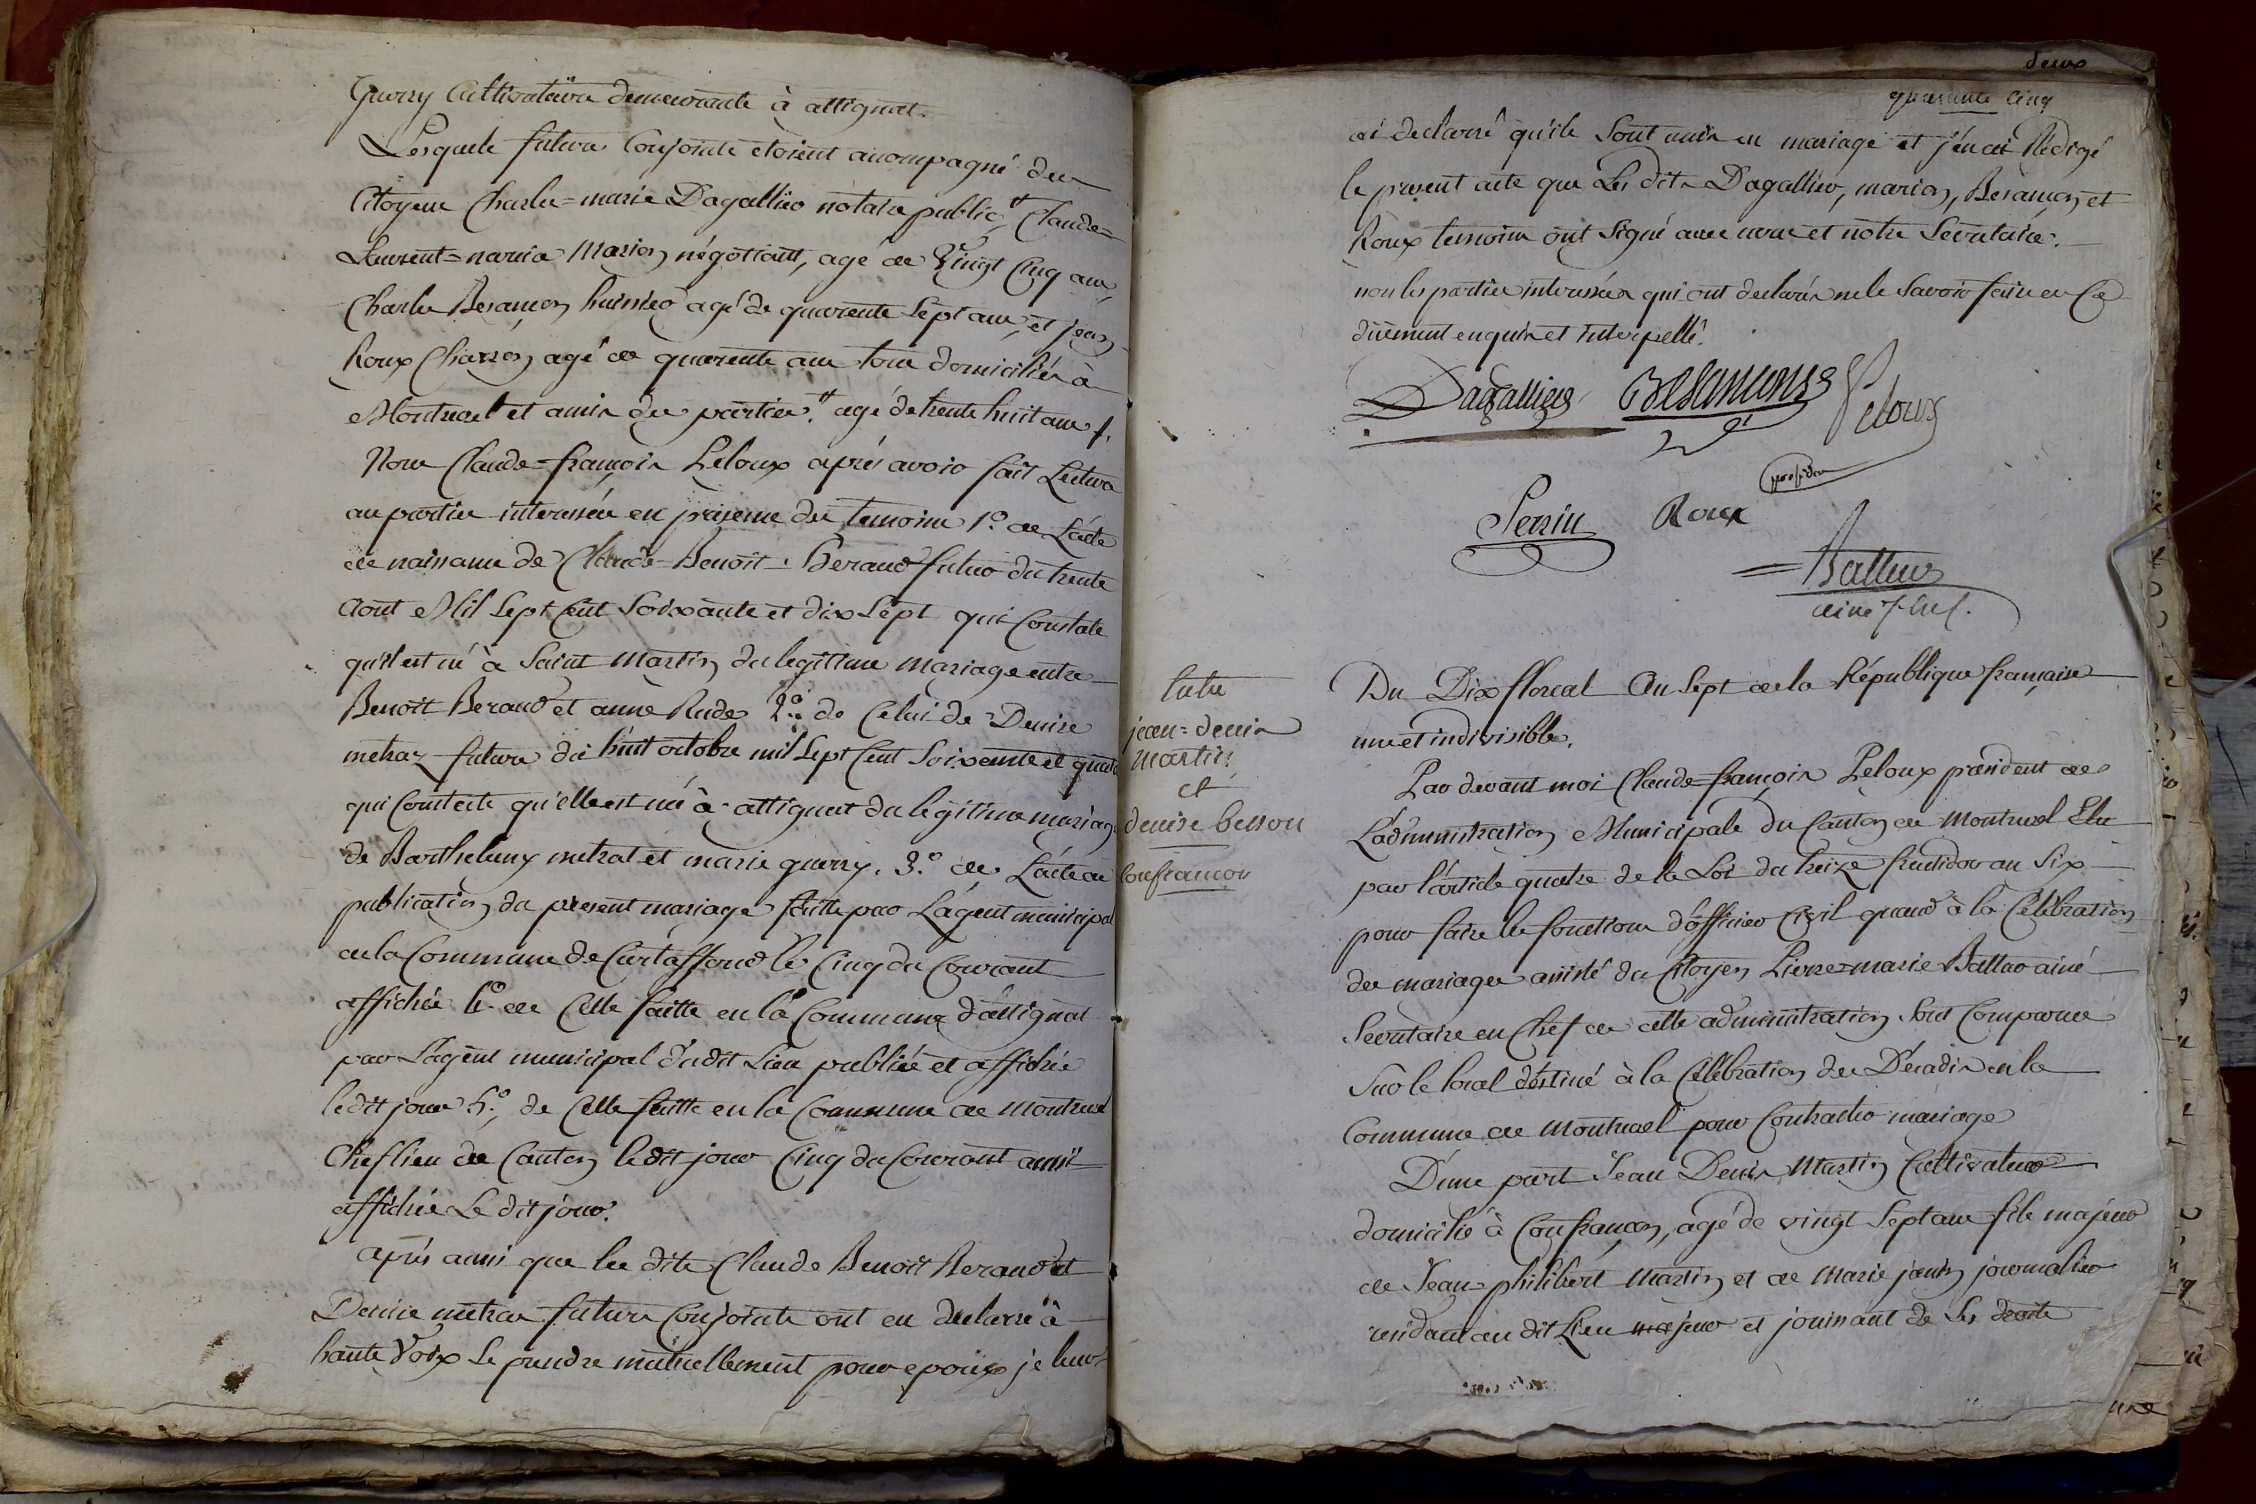 Guerry Cultivateurs demeurants à attignat.
Lesquels futurs Conjoints étoient acompagné des
Citoyens Charles=marie Dagallier notaire public, tt Claude=
Laurent=marie Marion négotiant, agé de Vingt Cinq ans,
Charles Besançon huissier agé de quarente Sept ans, et jean
Roux Charron agé de quarente ans tous domiciliés à
Montrevel et amis des parties. tt agé de trente huit ans f.
Nous Claude=françois Peloux après avoir fait Lecture
aux parties interessées en présence des temoins 1.° de L'acte
de naissance de Claude-Benoît Beraud futur du trente
Aout Mil Sept Cent Soixante et dix Sept qui Constate
qu'il est né à Saint Martin du legitime mariage entre
Benoit Beraud et anne Rude 2.° de Celui de Denise
metraz future du huit octobre mil Sept Cent Soixante et quatre
qui Constate qu'elle est née à attignat du légitime mariage
de Barthelemy metrat et marie guerry. 3.° de L'acte de
publication du present mariage faitte par L'agent municipal
de la Commune de Curtaffond le Cinq du Courant
affichée 4.° de Celle faitte en la Commune d'attignat
par L'agent municipal dudit Lieu publiée et affichée
ledit jour 5.° de Celle faitte en la Commune de montrevel
Cheflieu de Canton ledit jour Cinq du Courant aussi
affichée Ledit jour.
après aussi que les dits Claude Benoit Beraud et
Denise metraz futurs Conjoints ont eu declarré à
haute Voix Se prendre mutuellement pour epoux je leur
deux
quarante Cinq
ai declarré qu'ils Sont unis en mariage et j'en ai Rédigé
le present acte que Les dits Dagallier, marion, Besançon et
Roux temoins ont Signé avec nous et notre Secretaire.
non les parties interessées qui ont declarés ne le Savoir faire de Ce
duement enquis et interpellé.
Dagallier Besançons Peloux
président
Perrin Roux
Balleur
ainé S. chef.
entre
jean=denis
martin
et
denise besson
Confrançon
Du Dix floreal An Sept de la République française
une et indivisible.
Par devant moi Claude=françois Peloux président de
L'administration Municipale du Canton de Montrevel Elu
par l'article quatre de la Loi du treize fructidor an Six
pour faire les fonctions d'officier Civil quand à la Célébration
des mariages assisté du Citoyen Pierre=marie Balleur ainé
Secretaire en Chef de cette administration, Sont Comparus
Sur le local déstiné à la Célébration des Décadis en la
Commune de Montrevel pour Contracter mariage
D'une part Jean Denis Martin Cultivateur
domicilié à Confrançon, agé de vingt Sept ans fils majeur
de Jean philibert Martin et de Marie janin journalier
residant au dit Lieu majeur et jouissant de Ses droits
une